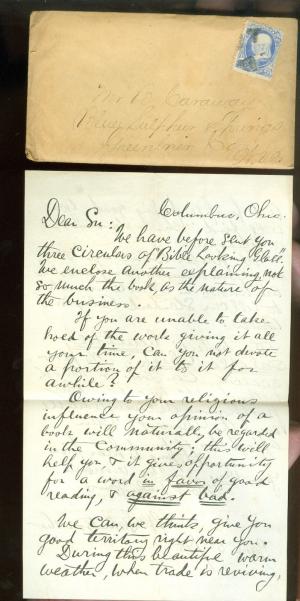 Mr W. Caraway
Blue Sulphur Springs
Greenbrier Co
W. Va.
Columbus, Ohio.
Dear Sir:
We have before sent you
three circulars of "Bible Looking Glass".
We enclose another explaining, not
so much the book, as the nature of
the business.
If you are unable to take
hold of the work giving it all
your time, can you not devote
a portion of it to it for
awhile?
Owing to your religious
influence your opinion of a
book will naturally be regarded
in the community; this will
help you, & it gives opportunity
for a word in favor of good
reading, & against bad.
We can, we think, give you
good territory right near you.
During this beautiful warm
weather, when trade is reviving,